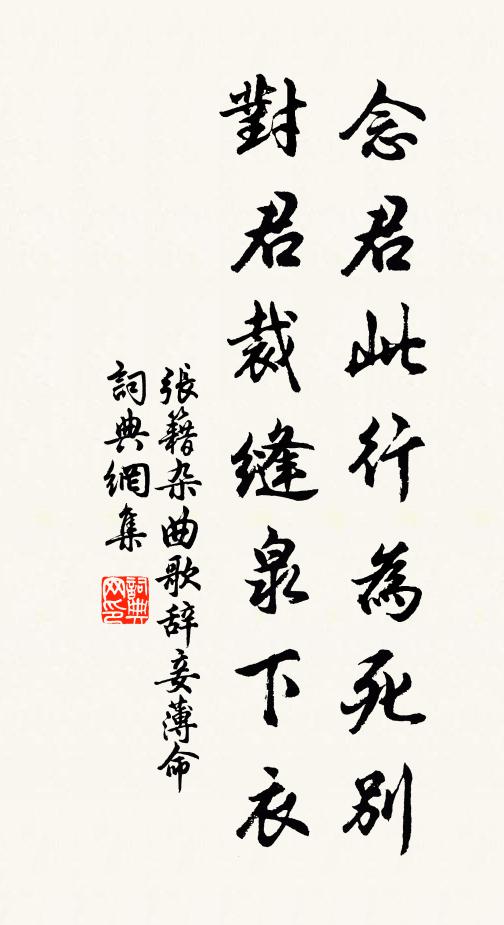 念君此行為死別
對君裁縫泉下衣
張籍杂曲歌辞妾薄命
詞典網集
詞典
网印